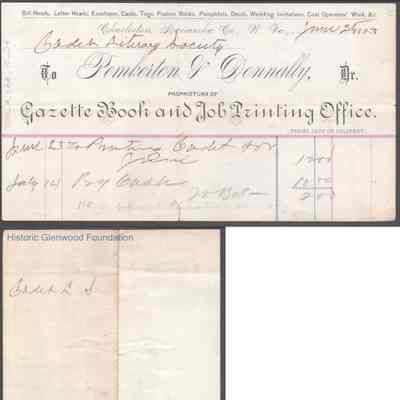 Bill Heads, Letter Heads, Envelopes, Cards, Tags, Posters, Books, Pamphlets, Deeds, Wedding Invitations, Coal Operators' Work, &c.
Charleston, Kanawha Co., W. Va., June 23 1883
Cadet Literary Society
To Pemberton & Donnally, Dr.
PROPRIETORS OF
Gazette Book and Job Printing Office.
TERMS, CASH ON DELIVERY.
June 23 To Printing Cadet for
June 12 00
July 14 By Cash 10 00
To Bal 2 00
Historic Glenwood Foundation
Cadet L. S.